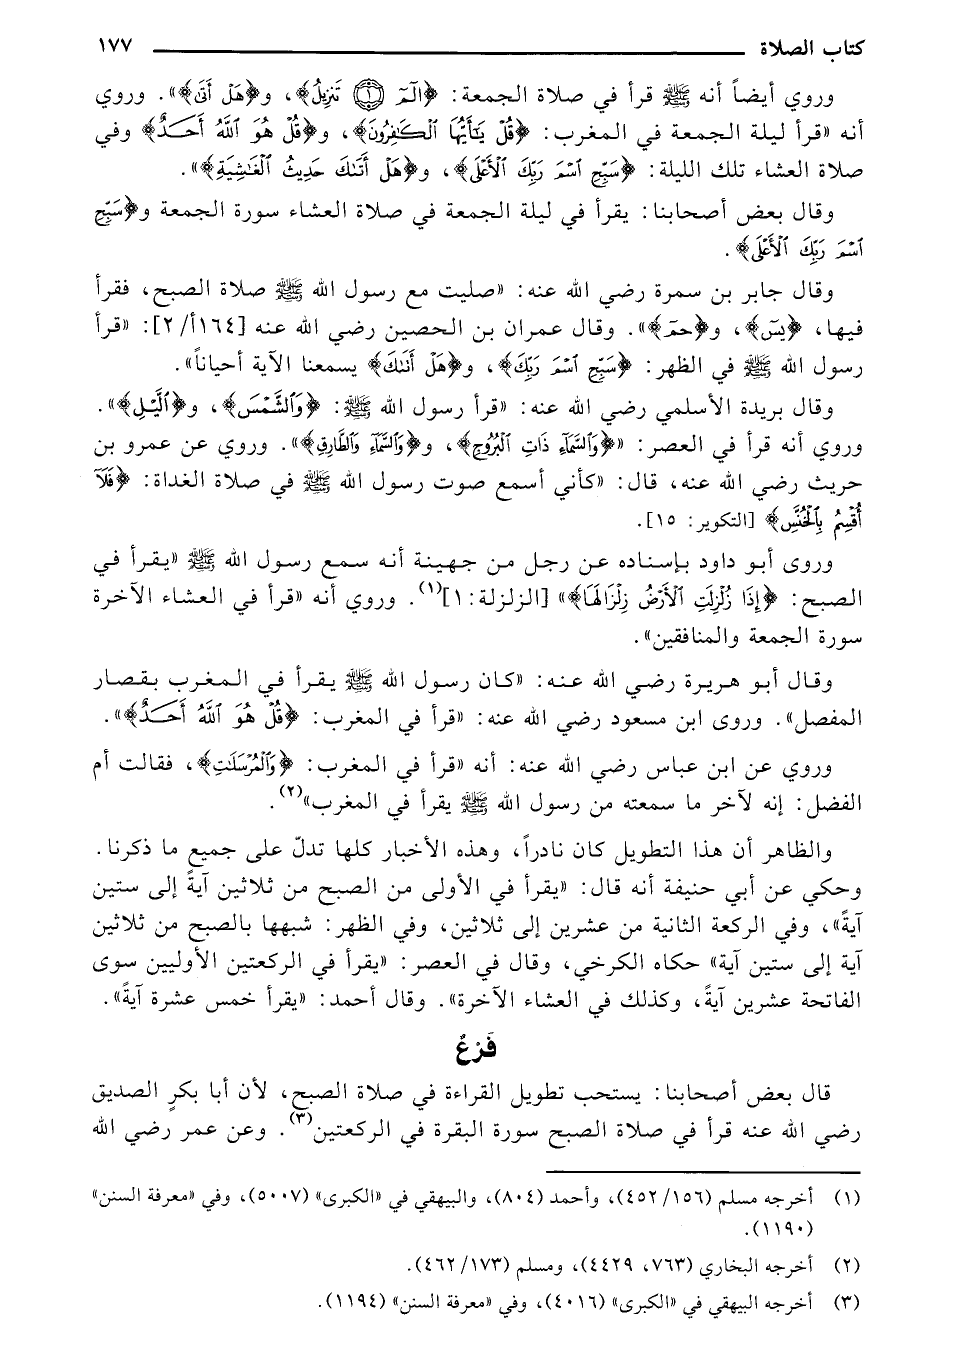 كتاب الصلاة ١٧٧
وروي أيضاً أنه ﷺ قرأ في صلاة الجمعة: ﴿الٓمٓ ۝١ تَنزِيلُ﴾، و﴿هَلْ أَتَىٰ﴾». وروي
أنه «قرأ ليلة الجمعة في المغرب: ﴿قُلْ يَٰٓأَيُّهَا ٱلْكَٰفِرُونَ﴾، و﴿قُلْ هُوَ ٱللَّهُ أَحَدٌ﴾ وفي
صلاة العشاء تلك الليلة: ﴿سَبِّحِ ٱسْمَ رَبِّكَ ٱلْأَعْلَى﴾، و﴿هَلْ أَتَىٰكَ حَدِيثُ ٱلْغَٰشِيَةِ﴾».
وقال بعض أصحابنا: يقرأ في ليلة الجمعة في صلاة العشاء سورة الجمعة و﴿سَبِّحِ
ٱسْمَ رَبِّكَ ٱلْأَعْلَى﴾.
وقال جابر بن سمرة رضي الله عنه: «صليت مع رسول الله ﷺ صلاة الصبح، فقرأ
فيها، ﴿يسٓ﴾، و﴿حمٓ﴾». وقال عمران بن الحصين رضي الله عنه [١٦٤أ/٢]: «قرأ
رسول الله ﷺ في الظهر: ﴿سَبِّحِ ٱسْمَ رَبِّكَ﴾، و﴿هَلْ أَتَىٰكَ﴾ يسمعنا الآية أحياناً».
وقال بريدة الأسلمي رضي الله عنه: «قرأ رسول الله ﷺ: ﴿وَٱلشَّمْسِ﴾، و﴿ٱلَّيْلِ﴾».
وروي أنه قرأ في العصر: «﴿وَٱلسَّمَآءِ ذَاتِ ٱلْبُرُوجِ﴾، و﴿وَٱلسَّمَآءِ وَٱلطَّارِقِ﴾». وروي عن عمرو بن
حريث رضي الله عنه، قال: «كأني أسمع صوت رسول الله ﷺ في صلاة الغداة: ﴿فَلَآ
أُقْسِمُ بِٱلْخُنَّسِ﴾ [التكوير: ١٥].
وروى أبو داود بإسناده عن رجل من جهينة أنه سمع رسول الله ﷺ «يقرأ في
الصبح: ﴿إِذَا زُلْزِلَتِ ٱلْأَرْضُ زِلْزَالَهَا﴾» [الزلزلة: ١](١). وروي أنه «قرأ في العشاء الآخرة
سورة الجمعة والمنافقين».
وقال أبو هريرة رضي الله عنه: «كان رسول الله ﷺ يقرأ في المغرب بقصار
المفصل». وروى ابن مسعود رضي الله عنه: «قرأ في المغرب: ﴿قُلْ هُوَ ٱللَّهُ أَحَدٌ﴾».
وروي عن ابن عباس رضي الله عنه: أنه «قرأ في المغرب: ﴿وَٱلْمُرْسَلَٰتِ﴾، فقالت أم
الفضل: إنه لآخر ما سمعته من رسول الله ﷺ يقرأ في المغرب»(٢).
والظاهر أن هذا التطويل كان نادراً، وهذه الأخبار كلها تدلّ على جميع ما ذكرنا.
وحكي عن أبي حنيفة أنه قال: «يقرأ في الأولى من الصبح من ثلاثين آيةً إلى ستين
آيةً»، وفي الركعة الثانية من عشرين إلى ثلاثين، وفي الظهر: شبهها بالصبح من ثلاثين
آية إلى ستين آية» حكاه الكرخي، وقال في العصر: «يقرأ في الركعتين الأوليين سوى
الفاتحة عشرين آيةً، وكذلك في العشاء الآخرة». وقال أحمد: «يقرأ خمس عشرة آيةً».
فَرْعٌ
قال بعض أصحابنا: يستحب تطويل القراءة في صلاة الصبح، لأن أبا بكرٍ الصديق
رضي الله عنه قرأ في صلاة الصبح سورة البقرة في الركعتين(٣). وعن عمر رضي الله
(١) أخرجه مسلم (٤٥٢/١٥٦)، وأحمد (٨٠٤)، والبيهقي في «الكبرى» (٥٠٠٧)، وفي «معرفة السنن»
(١١٩٠).
(٢) أخرجه البخاري (٧٦٣، ٤٤٢٩)، ومسلم (٤٦٢/١٧٣).
(٣) أخرجه البيهقي في «الكبرى» (٤٠١٦)، وفي «معرفة السنن» (١١٩٤).